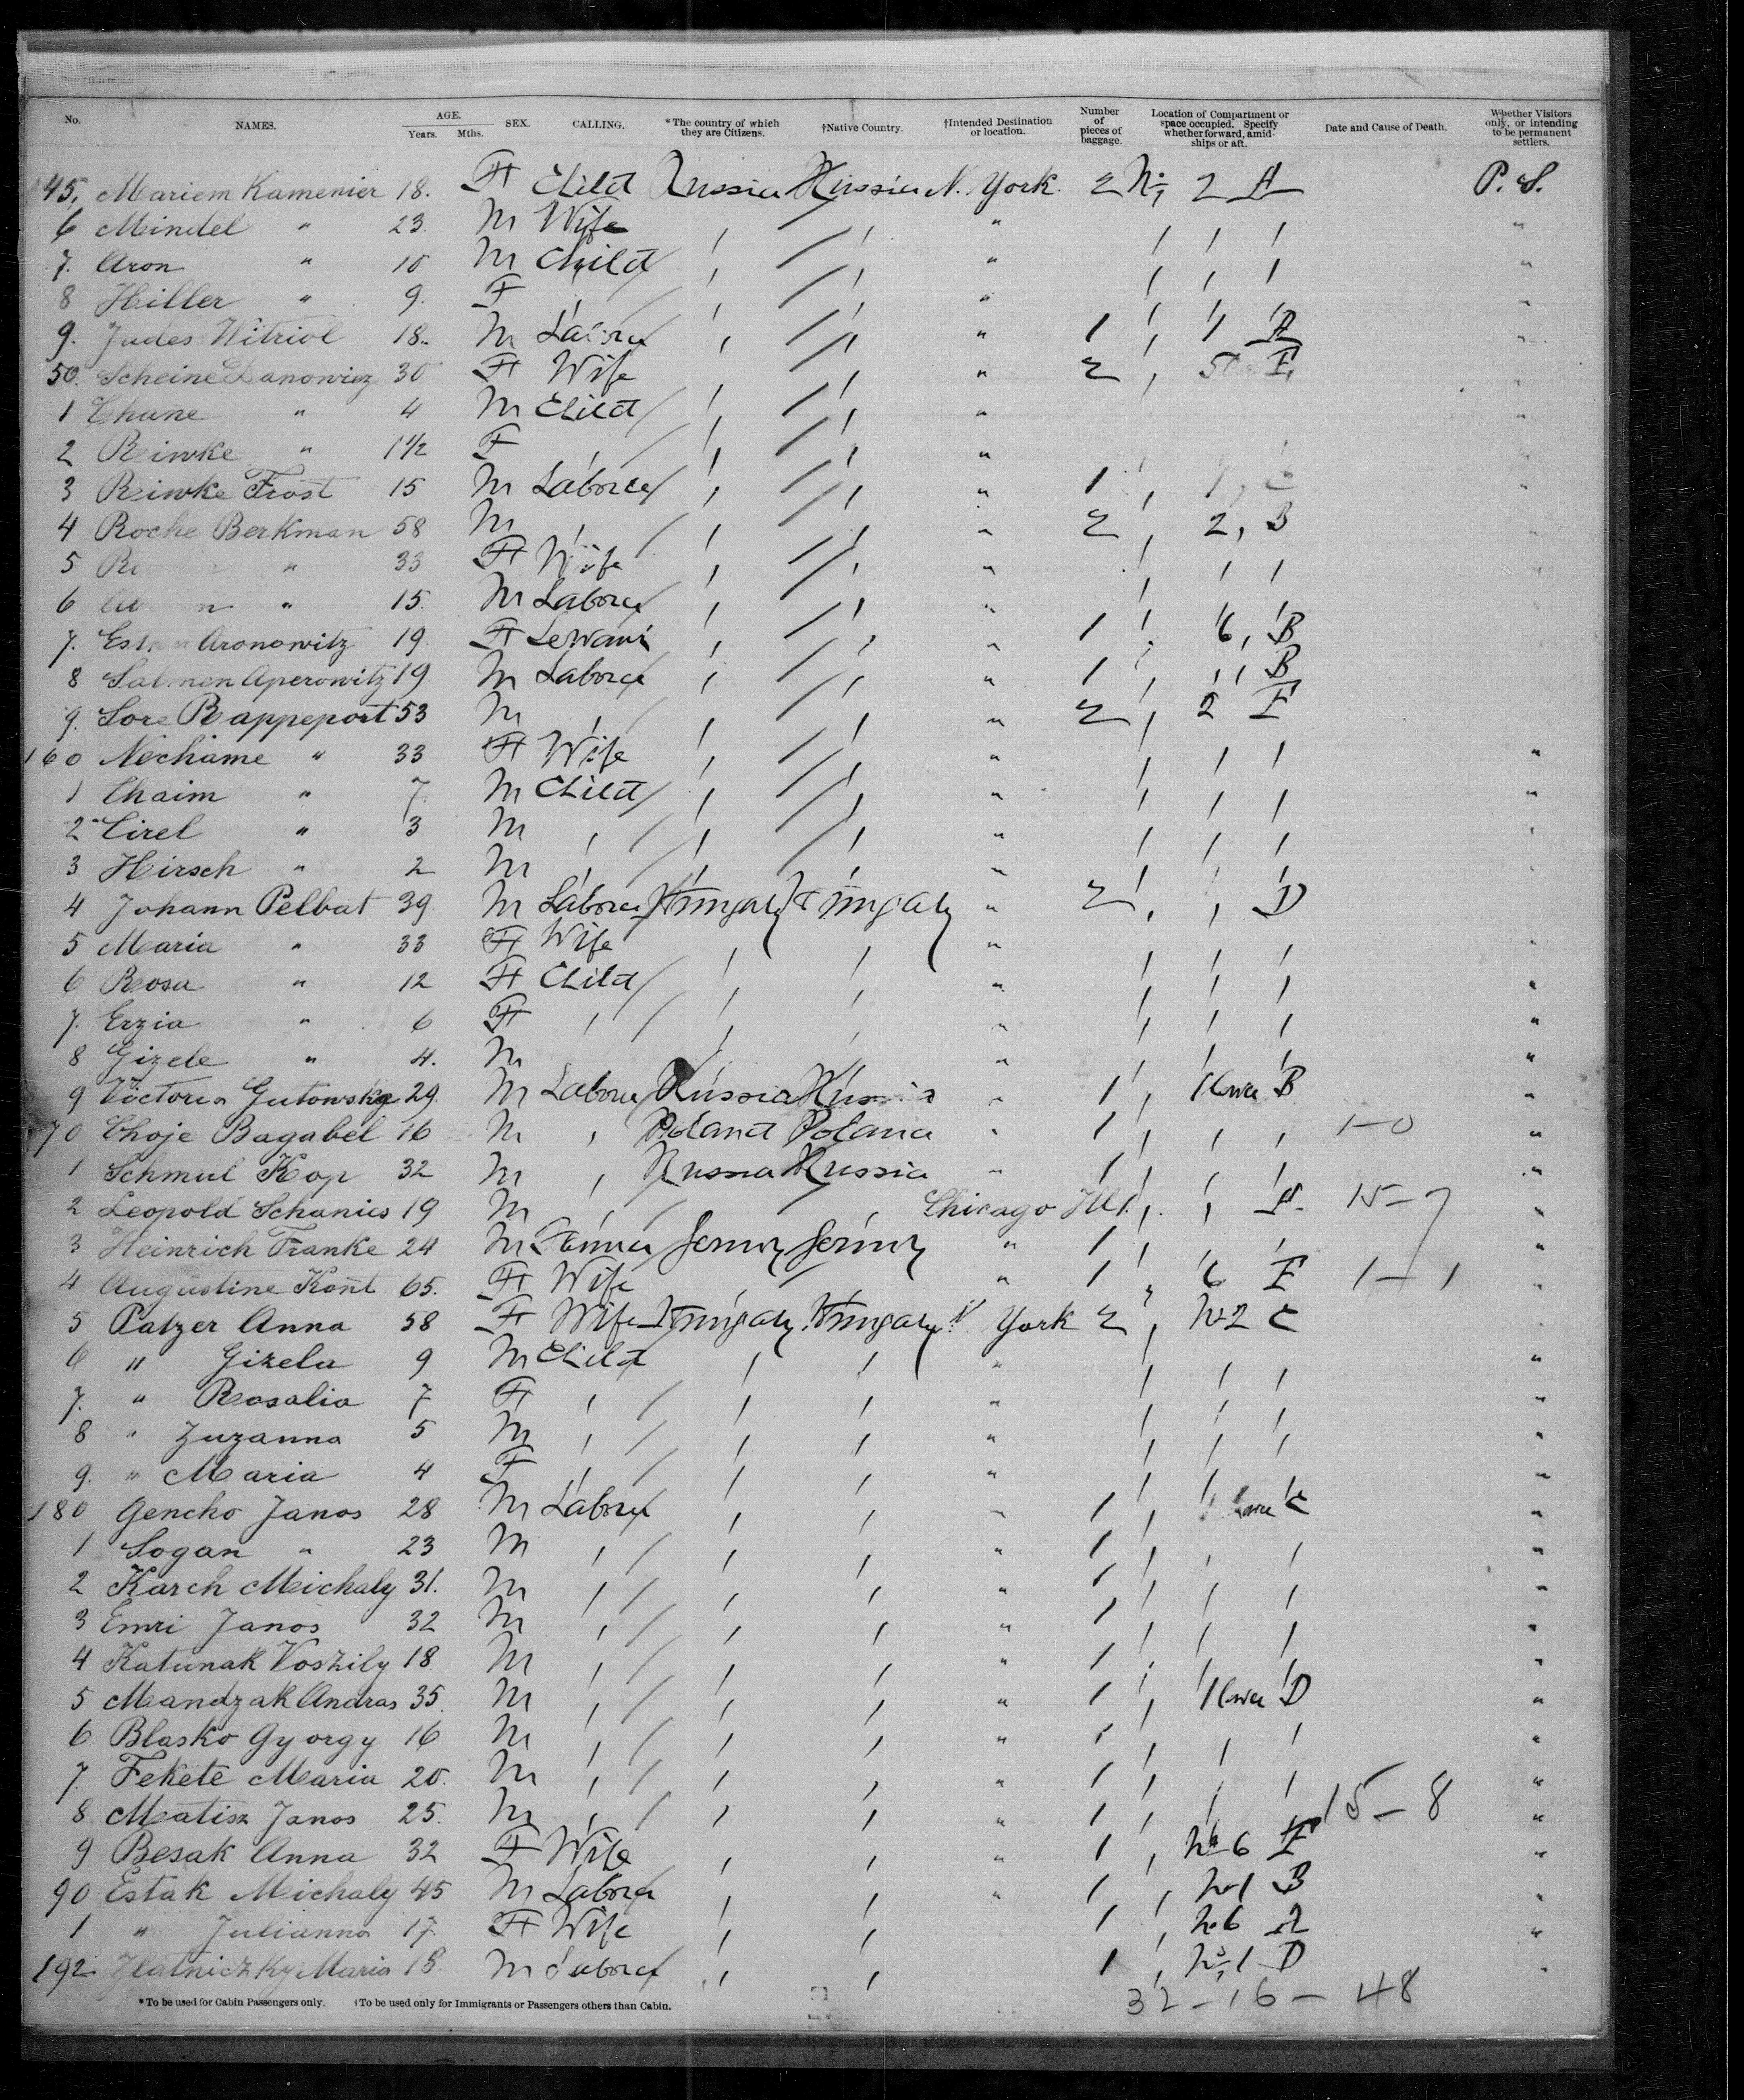 No. NAMES. AGE. Years. Mths. SEX. CALLING. *The country of which they are Citizens. †Native Country. †Intended Destination or location. Number of pieces of baggage. Location of Compartment or space occupied. Specify whether forward, amidships or aft. Date and Cause of Death. Whether Visitors only, or intending to be permanent settlers.
145. Mariem Kamenier 18. F Child Russia Russia N. York. 2 No. 2 A P. S.
6 Mindel " 23. M Wife " "
7. Aron " 10 M Child " "
8 Hiller " 9. F " "
9. Judes Witriol 18. M Laborer " 1 1 A "
50. Scheine Danowicz 30 F Wife " 2 F "
1 Chune " 4 M Child " "
2 Reiwke " 1 1/2 F " "
3 Reiwke Frost 15 M Laborer " 1 1 "
4 Roche Berkman 58 M " 2 2, B "
5 " 33 F Wife "
6 " 15. M Laborer "
7. Aronowitz 19. F " 1 6, B
8 Salmen Aperowitz 19 M Laborer " 1 B
9. Sore Rappeport 53 M " 2 2 F
160 Nechame " 33 F Wife " "
1 Chaim " 7. M Child " "
2 Cirel " 3 M " "
3 Hirsch " 2 M "
4 Johann Pelbat 39 M Laborer Hungary Hungary " 2 D
5 Maria " 33 F Wife " "
6 Rosa " 12 F Child " "
7. Erzia " 6 F " "
8 Gizele " 4. M " "
9 Victoria Gutowska 29. M Laborer Russia Russia " 1 1 Lower B "
70 Choje Bagabel 16 M Poland Poland " 1 1-0 "
1 Schmul Kop 32 M Russia Russia " 1 "
2 Leopold Schanies 19 M Chicago Ill. 15-7 "
3 Heinrich Franke 24 M Germy Germy " 1 "
4 Augustine Kont 65. F Wife " 1 6 F 1-1 "
5 Patzer Anna 58 F Wife Hungary Hungary N. York 2 No 2 C "
6 " Gizela 9 M Child " "
7. " Rosalia 7 F " "
8 " Zuzanna 5 M " "
9. " Maria 4 F " "
180 Gencho Janos 28 M Laborer " 1 1 Lower C "
1 Sogan " 23 M " 1 "
2 Karch Michaly 31. M " 1 "
3 Emri Janos 32 M " 1 "
4 Katunak Voszily 18 M " 1 "
5 Mandzak Andras 35. M " 1 1 Lower D "
6 Blasko Gyorgy 16 M " 1 "
7. Fekete Maria 20. M " 1 "
8 Matisz Janos 25. M " 1 15-8 "
9 Besak Anna 32 F Wife " 1 No 6 F "
90 Estak Michaly 45 M Laborer " 1 No 1 B "
1 " Julianna 17 F Wife 1 No 6 "
192. Zlatniczky Maria 18. M Laborer 1 No. 1 D "
*To be used for Cabin Passengers only. †To be used only for Immigrants or Passengers others than Cabin.
32-16-48